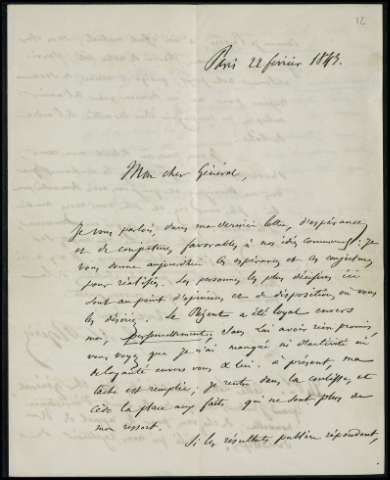 12
Paris 22 février 1843.
Mon cher Général,
Je vous parlais, dans ma dernière lettre, d'espérances
et de conjectures favorables à nos idées communes; je
vous donne aujourd'hui les espérances et les conjectures
pour réalités. Les personnes les plus décisives ici
sont au point d'opinions et de dispositions où vous
les désirez. Le Régent a été loyal envers
moi, personnellement, sans lui avoir rien promis
vous voyez que je n'ai manqué ni d'activité ni
de loyauté envers vous & lui. à présent, ma
tâche est remplie; je rentre dans la coulisse, et
cède la place aux faits qui ne sont plus de
mon ressort.
Si les résultats publics répondent,